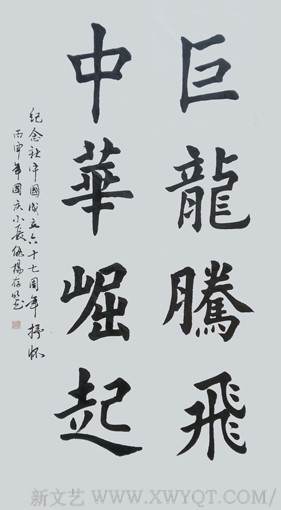 巨龍騰飛
中華崛起
纪念中國成立六十七周年抒怀
丙申年國庆小長假楊存
新文艺 WWW.XWYQT.COM/